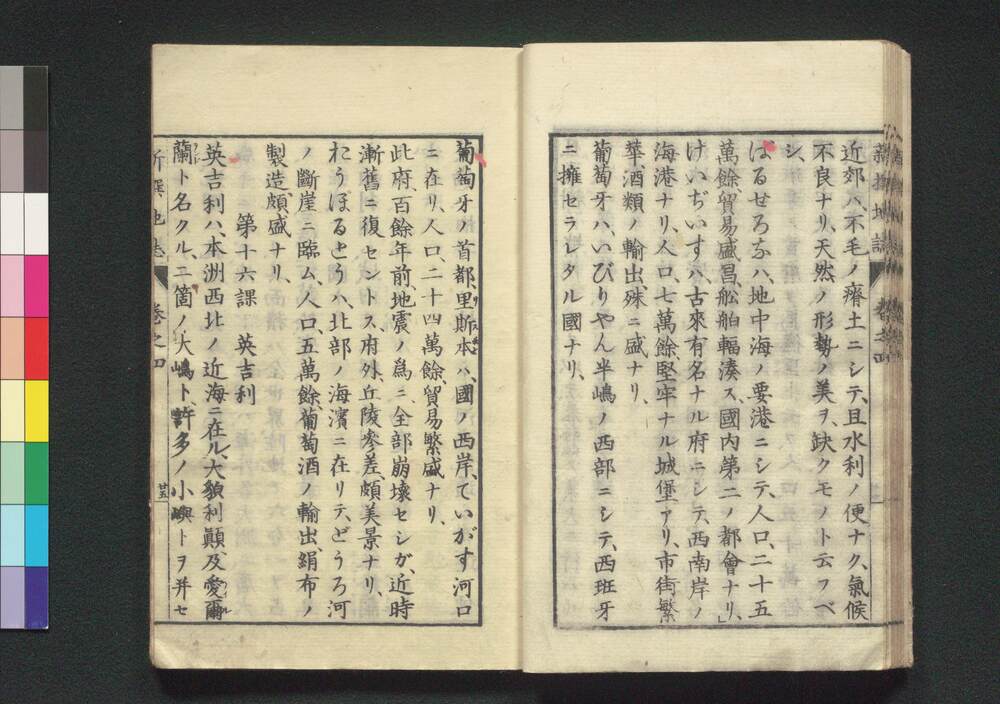 近郊ハ、不毛ノ瘠土ニシテ、且水利ノ便ナク、氣候
不良ナリ、天然ノ形勢ノ美ヲ、缺クモノト云フベ
シ、
ばるせろなハ、地中海ノ要港ニシテ、人口、二十五
萬餘、貿易盛昌、舩舶輻湊ス、國内第二ノ都會ナリ、」
けいぢいすハ、古來有名ナル府ニシテ、西南岸ノ
海港ナリ、人口、七萬餘、堅牢ナル城堡アリ、市街繁
華、酒類ノ輸出、殊ニ盛ナリ、
葡萄牙ハ、いびりやん半嶋ノ西部ニシテ、西班牙
ニ擁セラレタル國ナリ、
葡萄牙ノ首都、里斯本ハ、國ノ西岸、ていがす河口
ニ在リ、人口、二十四萬餘、貿易繁盛ナリ、
此府、百餘年前、地震ノ爲ニ、全部崩壊セシガ、近時
漸舊ニ復セントス、府外、丘陵參差、頗美景ナリ、
おうぽるとうハ、北部ノ海濱ニ在リテ、どうろ河
ノ斷崖ニ臨ム、人口、五萬餘、葡萄酒ノ輸出、絹布ノ
製造、頗盛ナリ、
第十六課 英吉利
英吉利ハ、本洲西北ノ近海ニ在ル、大貌利顛、及愛爾
蘭ト名クル、二箇ノ大嶋ト、許多ノ小嶼トヲ幷セ
新撰地誌 卷之四 廿五